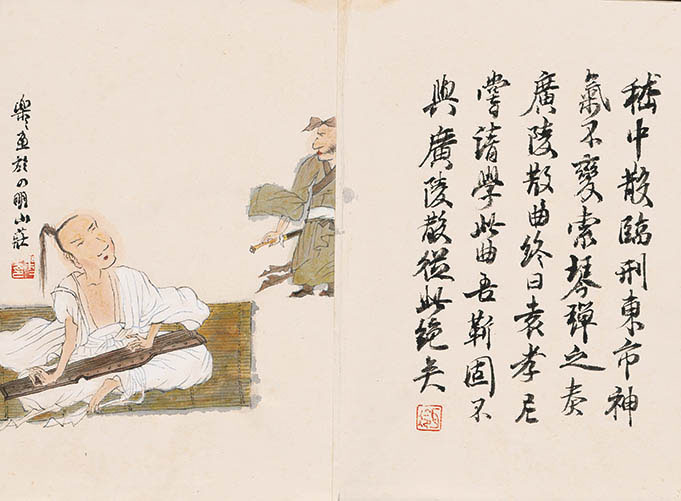 嵇中散臨刑東市神
氣不變索琴彈之奏
廣陵散曲終曰袁孝尼
嘗請學此曲吾靳固不
與廣陵散從此絕矣
樂画於四明山莊